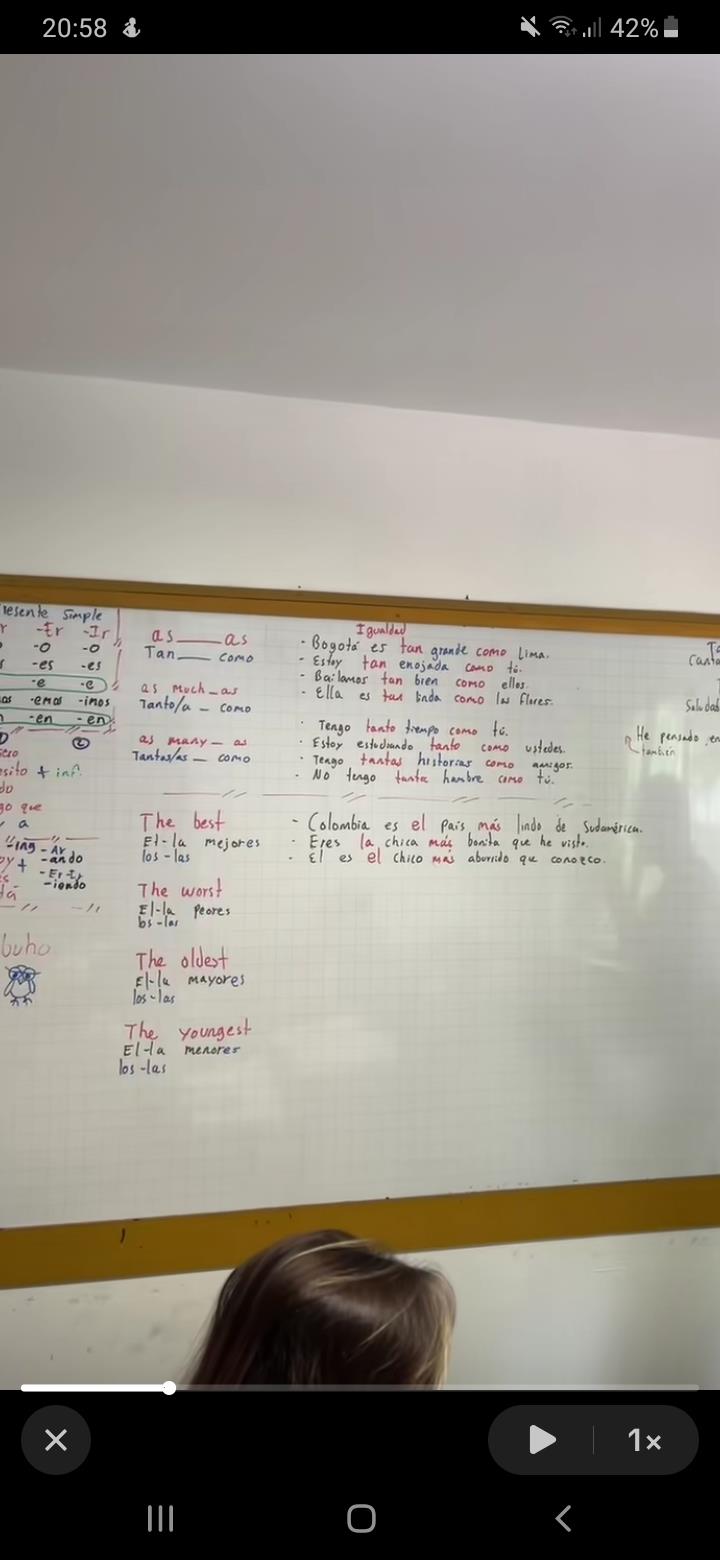 20:58
42%
Presente Simple
-Er -Ir
-o -o
-es -es
-e -e
-emos -imos
-en -en
②
+ inf.
que
a
-ing -Ar
+ -ando
-Er-Ir
-iendo
buho
as ____ as
Tan ____ como
as much _ as
Tanto/a _ como
as many _ as
Tantos/as _ como
The best
El-la mejores
los-las
The worst
El-la peores
los-las
The oldest
El-la mayores
los-las
The youngest
El-la menores
los-las
Igualdad
- Bogotá es tan grande como Lima.
- Estoy tan enojada como tú.
- Bailamos tan bien como ellos.
- Ella es tan linda como las flores.
· Tengo tanto tiempo como tú.
· Estoy estudiando tanto como ustedes.
· Tengo tantas historias como amigos.
· No tengo tanta hambre como tú.
- Colombia es el país más lindo de Sudamérica.
- Eres la chica más bonita que he visto.
- El es el chico más aburrido que conozco.
He pensado en
también
1x